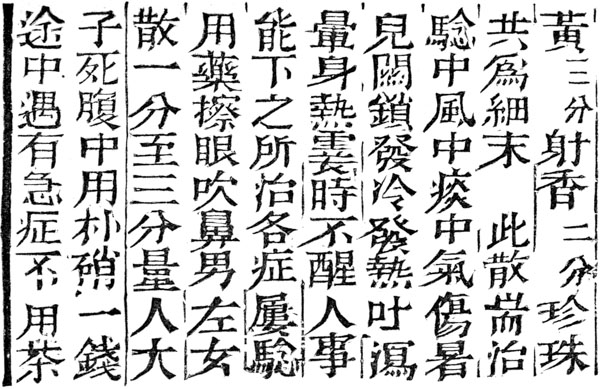 黃三分射香二分珍珠
共為細末　此散耑治
騐中風中痰中氣傷暑
兒関鎖發冷發熱吐瀉
暈身熱霎時不醒人事
能下之所治各症屢騐
用藥擦眼吹鼻男左女
散一分至三分量人大
子死腹中用朴硝一錢
途中遇有急症不用茶